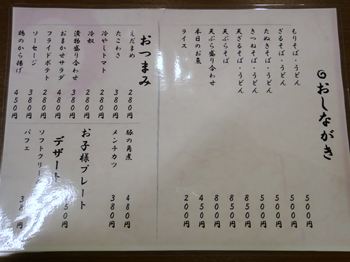 おしながき
もりそば・うどん 500円
ざるそば・うどん 500円
たぬきそば・うどん 500円
きつねそば・うどん 500円
天ざるそば・うどん 800円
天ぷらそば 800円
天ぷら盛り合わせ 800円
本日のお魚 450円
ライス 200円
おつまみ
えだまめ 280円
たこわさ 380円
冷やしトマト 280円
冷奴 280円
漬物盛り合わせ 380円
おまかせサラダ 380円
フライドポテト 380円
ソーセージ 380円
鶏のから揚げ 450円
豚の角煮 480円
メンチカツ 380円
お子様プレート
デザート
ソフトクリーム
パフェ